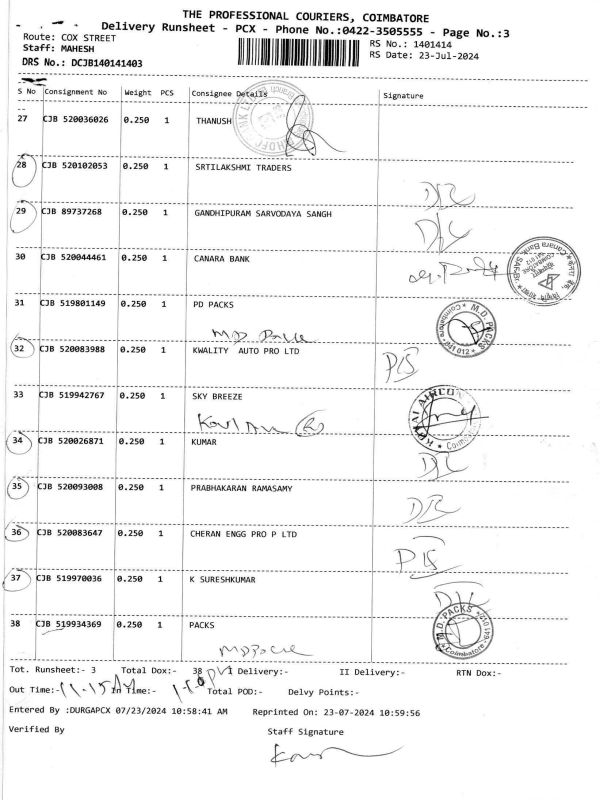 THE PROFESSIONAL COURIERS, COIMBATORE
Delivery Runsheet - PCX - Phone No.:0422-3505555 - Page No.:3
Route: COX STREET
RS No.: 1401414
Staff: MAHESH
RS Date: 23-Jul-2024
DRS No.: DCJB140141403
S No Consignment No Weight PCS Consignee Details Signature
27 CJB 520036026 0.250 1 THANUSH
28 CJB 520102053 0.250 1 SRTILAKSHMI TRADERS
29 CJB 89737268 0.250 1 GANDHIPURAM SARVODAYA SANGH
30 CJB 520044461 0.250 1 CANARA BANK
31 CJB 519801149 0.250 1 PD PACKS
M.D. PACKS
Coimbatore - 641 012
32 CJB 520083988 0.250 1 KWALITY AUTO PRO LTD
33 CJB 519942767 0.250 1 SKY BREEZE
34 CJB 520026871 0.250 1 KUMAR
35 CJB 520093008 0.250 1 PRABHAKARAN RAMASAMY
36 CJB 520083647 0.250 1 CHERAN ENGG PRO P LTD
37 CJB 519970036 0.250 1 K SURESHKUMAR
38 CJB 519934369 0.250 1 PACKS
M.D. PACKS
Coimbatore
Tot. Runsheet:- 3 Total Dox:- 38 I Delivery:- II Delivery:- RTN Dox:-
Out Time:- 11.15 In Time:- Total POD:- Delvy Points:-
Entered By :DURGAPCX 07/23/2024 10:58:41 AM Reprinted On: 23-07-2024 10:59:56
Verified By Staff Signature